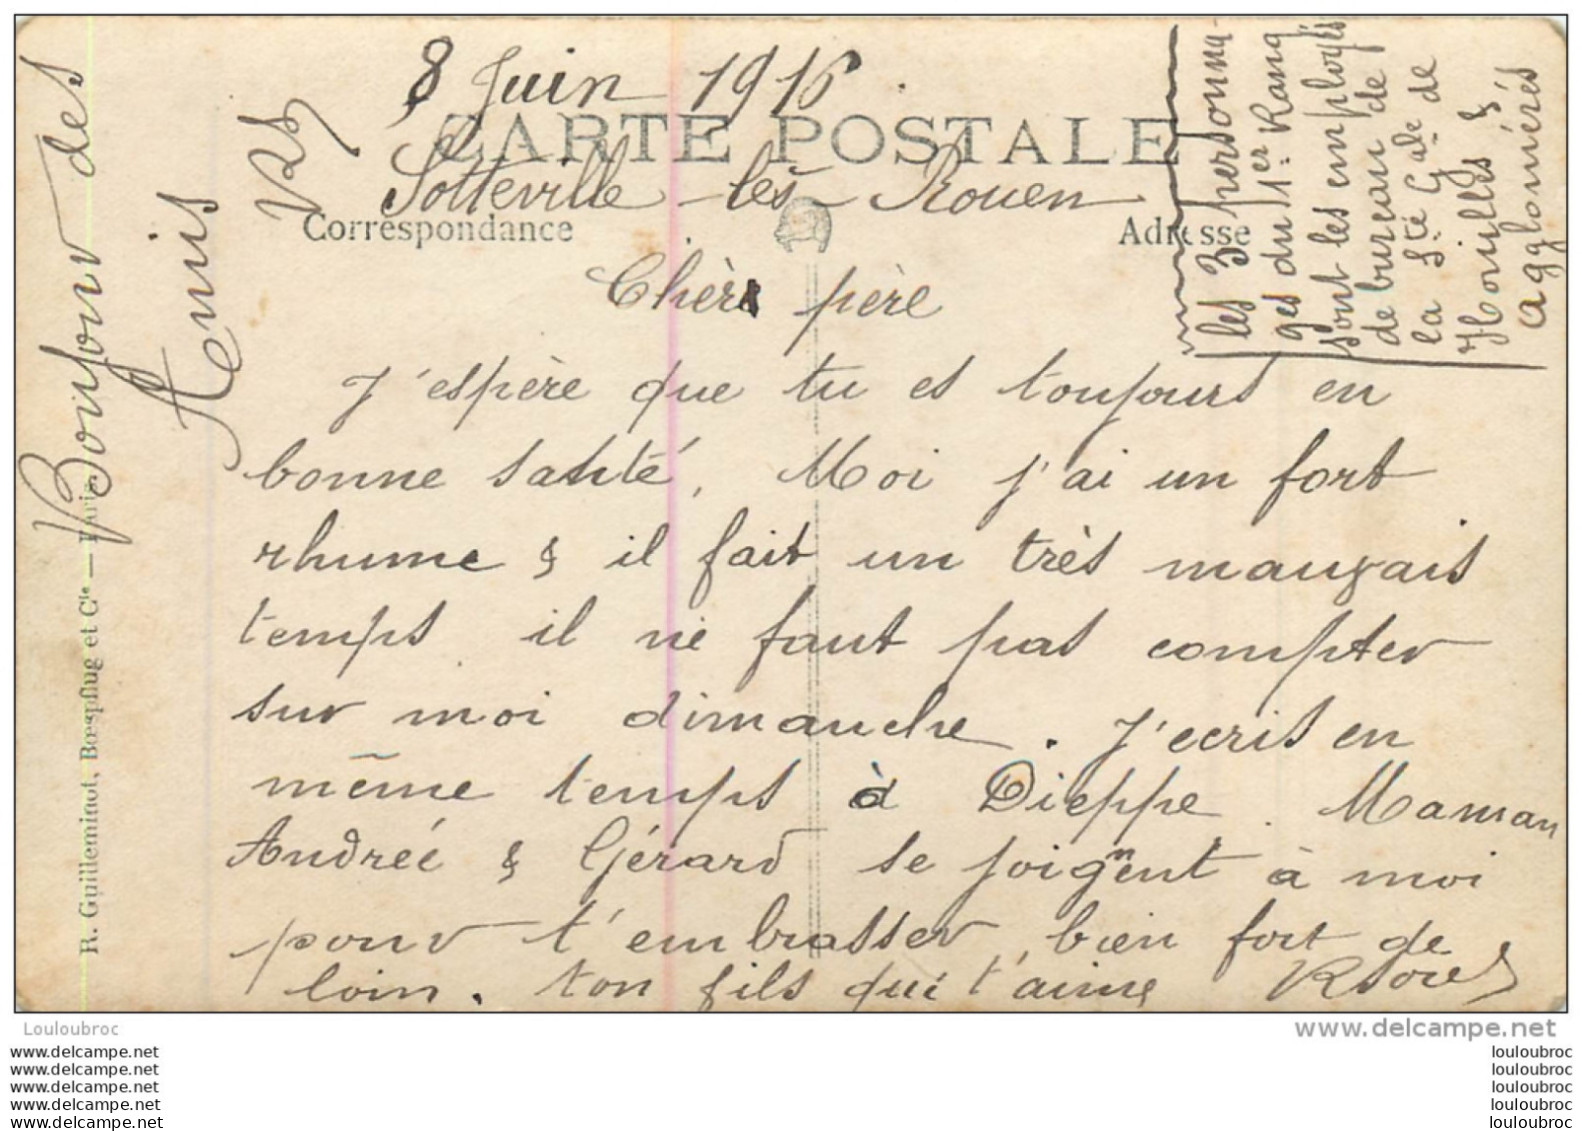 8 Juin 1916
CARTE POSTALE
Sotteville-lès-Rouen
Correspondance
Adresse
Chèr père
J'espère que tu es toujours en
bonne santé. Moi j'ai un fort
rhume & il fait un très mauvais
temps il ne faut pas compter
sur moi dimanche. J'ecris en
même temps à Dieppe. Maman
Andrée & Gérard se joignent à moi
pour t'embrasser bien fort de
loin. ton fils qui t'aime
les 3 personna-
ges du 1er Rang
sont les employés
de bureau de
la Sté Gale de
Houilles &
Agglomérés
Bonjour des
Amis
R. Guilleminot, Bœspflug et Cie — Paris
Louloubroc
www.delcampe.net
www.delcampe.net
www.delcampe.net
www.delcampe.net
www.delcampe.net
www.delcampe.net
louloubroc
louloubroc
louloubroc
louloubroc
louloubroc